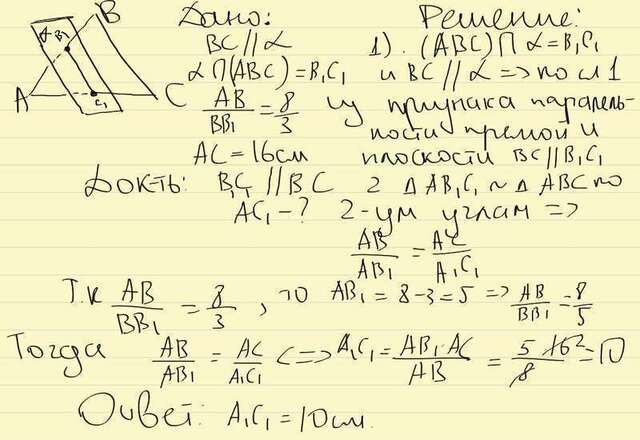 α B₁ B
A C₁ C
Дано:
BC // α
α ∩ (ABC) = B₁C₁
AB/BB₁ = 8/3
AC = 16 см
Док-ть: B₁C₁ // BC
AC₁ - ?
Решение:
1). (ABC) ∩ α = B₁C₁
и BC // α => по сл 1
из признака паралель-
ности прямой и
плоскости BC // B₁C₁
2 Δ AB₁C₁ ~ Δ ABC по
2-ум углам =>
AB/AB₁ = AC/A₁C₁
Т.к AB/BB₁ = 8/3, то AB₁ = 8 - 3 = 5 => AB/BB₁ = 8/5
Тогда AB/AB₁ = AC/A₁C₁ <=> A₁C₁ = AB₁·AC/AB = 5·16²/8 = 10
Ответ: A₁C₁ = 10 см.